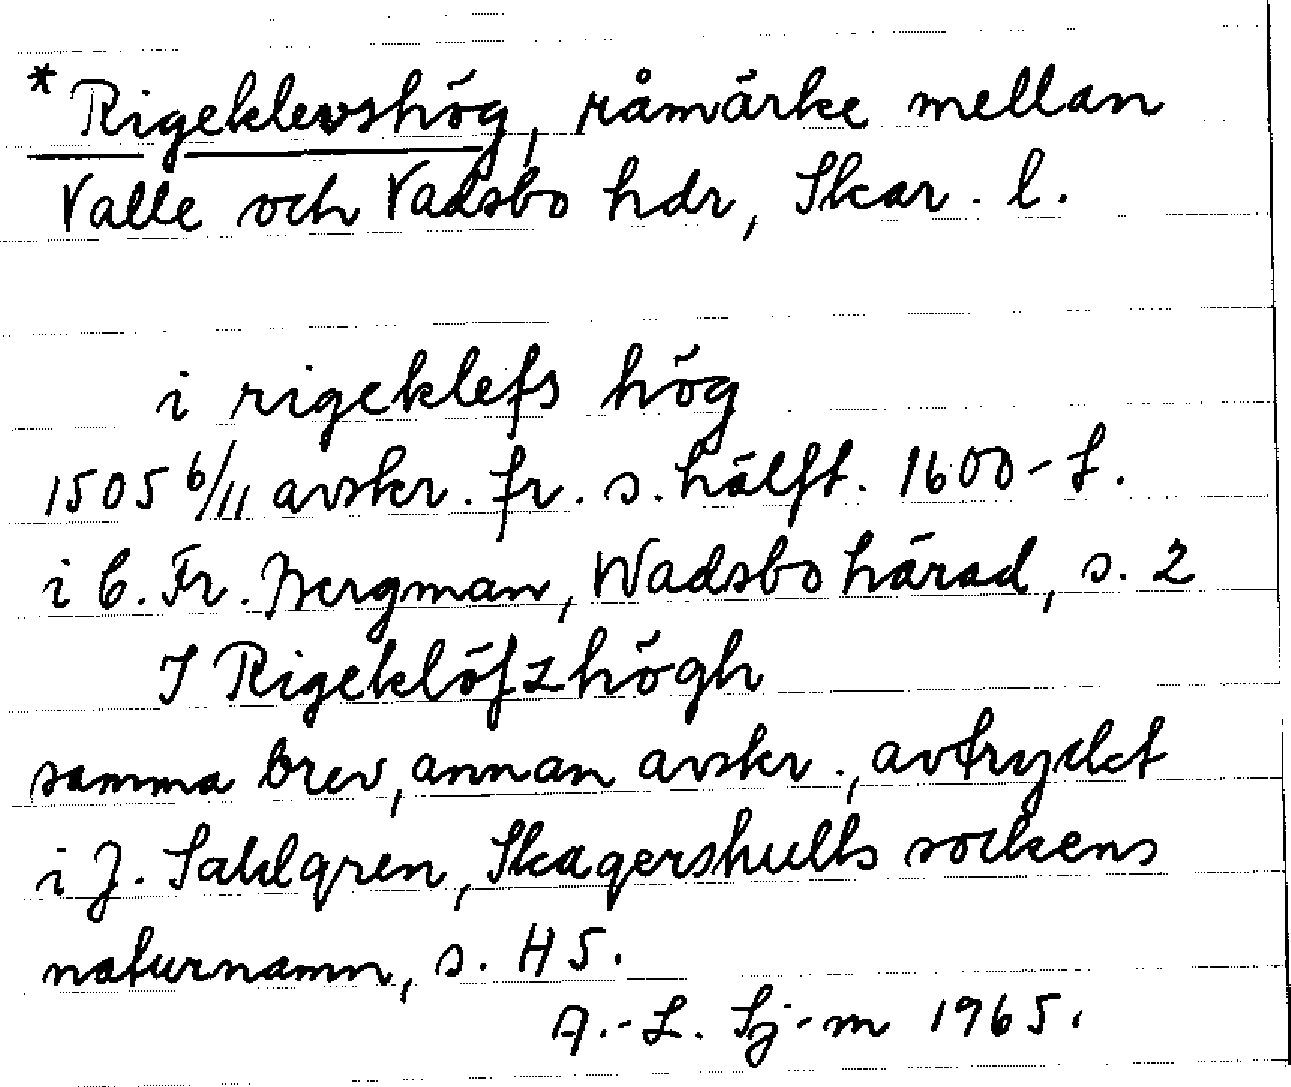 * Rigeklevshög, råmärke mellan
Valle och Vadsbo hdr, Skar. l.
i rigeklefs hög
1505 6/11 avskr. fr. s. hälft. 1600-t.
i C. Fr. Bergman, Wadsbo härad, s. 2
I Rigeklöfzhögh
samma brev, annan avskr., avtryckt
i J. Sahlgren, Skagershults sockens
naturnamn, s. 45.
A.-L. Sj-m 1965.